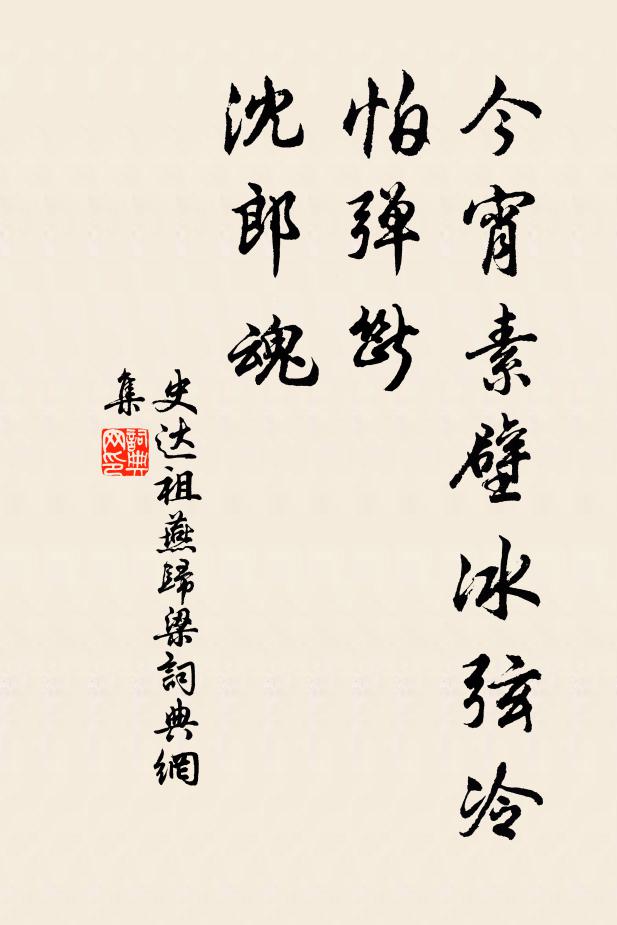 今宵素壁冰弦冷
怕弹斷
沈郎魂
史达祖燕歸梁詞典網
集
詞典
网印